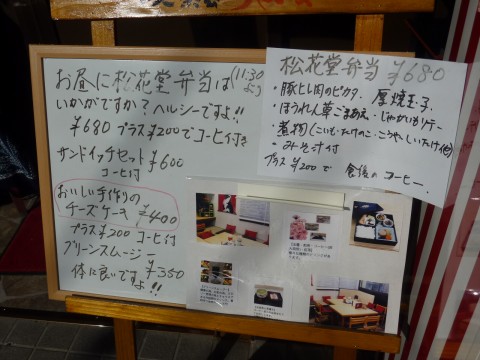 お昼に松花堂弁当は(11:30より)
いかがですか?ヘルシーですよ!!
¥680 プラス¥200でコーヒー付き
サンドイッチセット ¥600
コーヒー付
おいしい手作りの
チーズケーキ ¥400
プラス¥200 コーヒー付
グリーンスムージー ¥350
体に良いですよ!!
松花堂弁当 ¥680
・豚ヒレ肉のピカタ・厚焼玉子
・ほうれん草ごまあえ・じゃがいもソテー
・煮物(こいも・たけのこ・こうや・しいたけ他)
・みそ汁付
プラス¥200で 食後のコーヒー